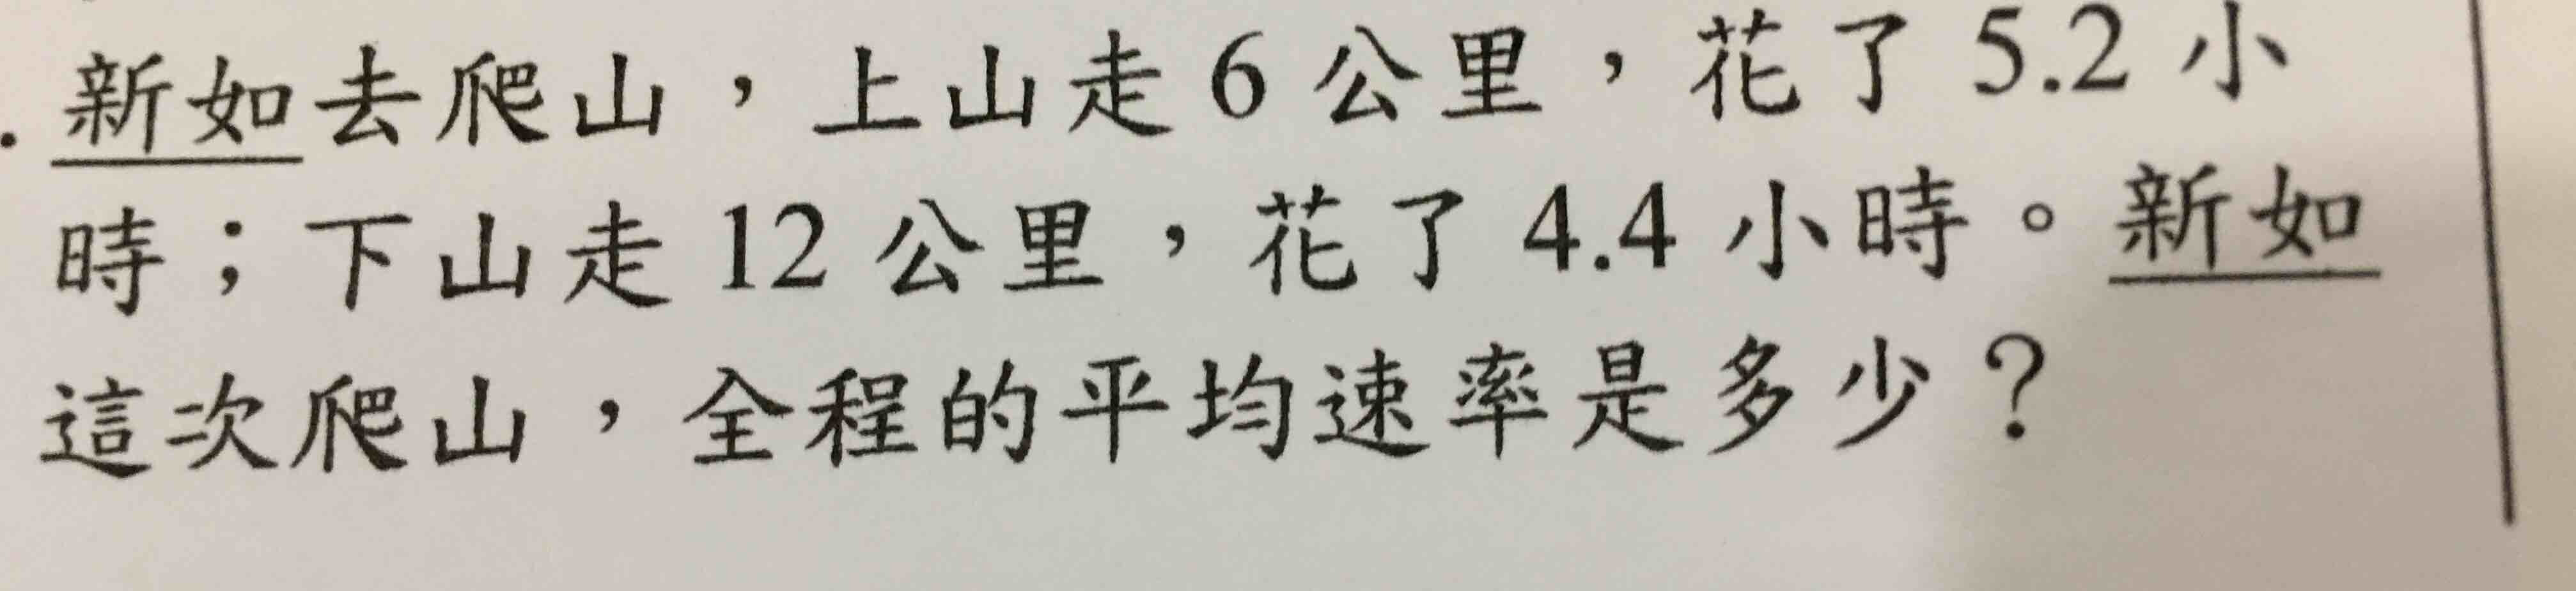 . 新如去爬山，上山走 6 公里，花了 5.2 小
時；下山走 12 公里，花了 4.4 小時。新如
這次爬山，全程的平均速率是多少？